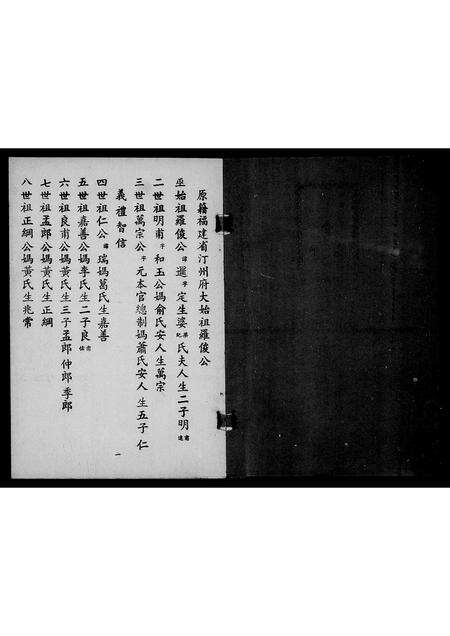 原籍福建省汀州府大始祖羅俊公
巫始祖羅俊公諱暹字定生婆紀氏夫人生二子明甫遠
二世祖明甫字和玉公媽俞氏安人生萬宗
三世祖萬宗公字元本官總制媽蕭氏安人生五子仁
義禮智信
四世祖仁公諱瑞媽葛氏生嘉善
五世祖嘉善公媽李氏生二子良
六世祖良甫公媽黃氏生三子孟郎仲郎季郎
七世祖孟郎公媽黃氏生正綱
八世祖正綱公媽黃氏生兆常
一